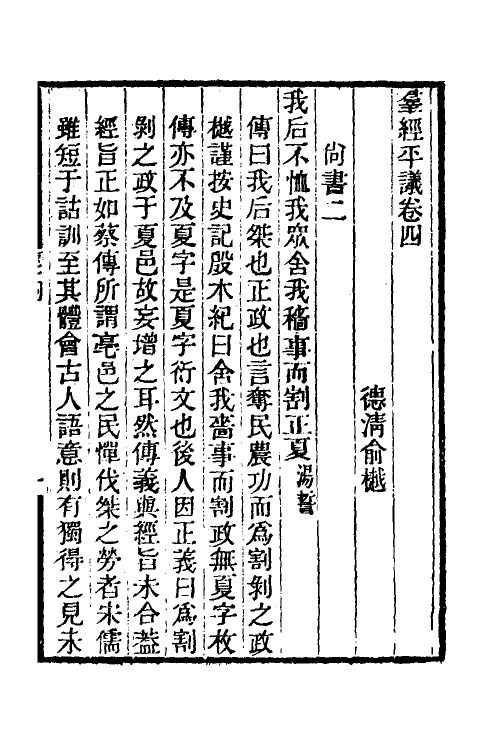 羣經平議卷四
德清俞樾
尙書二
我后不恤我眾舍我穡事而割正夏湯誓
傳曰我后桀也正政也言奪民農功而爲割剝之政
樾謹按史記殷本紀曰舍我嗇事而割政無夏字枚
傳亦不及夏字是夏字衍文也後人因正義曰爲割
剝之政于夏邑故妄增之耳然傳義與經旨未合葢
經旨正如蔡傳所謂亳邑之民憚伐桀之勞者宋儒
雖短于詁訓至其體會古人語意則有獨得之見未